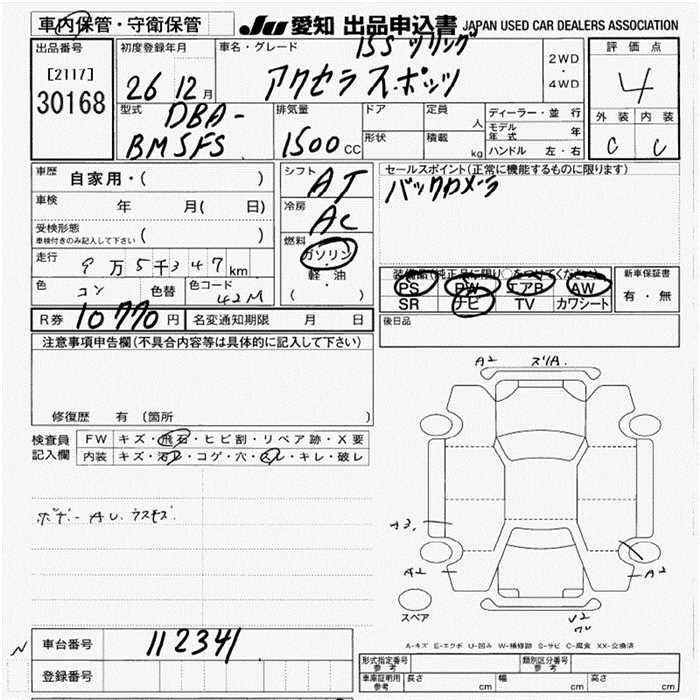 車内保管・守衛保管
JU 愛知 出品申込書 JAPAN USED CAR DEALERS ASSOCIATION
出品番号
[2117]
30168
初度登録年月
26 12月
車名・グレード
15S ツーリング
アクセラ スポーツ
2WD
・
4WD
評価点
4
外装 内装
C C
型式
DBA-
BM5FS
排気量
1500cc
ドア
形状
定員 人
積載 kg
ディーラー・並行
モデル年式 年
ハンドル 左・右
車歴 自家用・( )
車検 年 月( 日)
受検形態
車検付きのみ記入して下さい ( )
走行 9万5千347km
色 コン 色替 色コード 42M
シフト AT
冷房 AC
燃料
ガソリン
・
軽油
( )
セールスポイント(正常に機能するものに限ります)
バックカメラ
装備品(純正品に限り○をつけてください)
PS PW エアB AW
SR ナビ TV カワシート
新車保証書
有・無
後日品
R券 10770円 名変通知期限 月 日
注意事項申告欄(不具合内容等は具体的に記入して下さい)
修復歴 有 (箇所 )
検査員記入欄
FW キズ・飛石・ヒビ割・リペア跡・X要
内装 キズ・汚レ・コゲ・穴・スレ・キレ・破レ
ボデー AU.ウスキズ.
A2 スリA.
A3.
A2
A2
スペア
V2
A-キズ E-エクボ U-凹み W-補修跡 S-サビ C-腐食 XX-交換済
車台番号 112341
登録番号
形式指定番号 参考
類別区分番号 参考
車庫証明用 参考 長さ cm 幅 cm 高さ cm